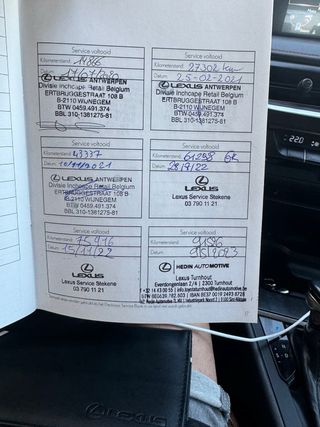 Service voltooid
Kilometerstand: 14866
Datum:
LEXUS ANTWERPEN
Divisie Inchcape Retail Belgium
ERTBRUGGESTRAAT 108 B
B-2110 WIJNEGEM
BTW 0459.491.374
BBL 310-1381275-81
Service voltooid
Kilometerstand: 27302 km
Datum: 25-02-2021
LEXUS ANTWERPEN
Divisie Inchcape Retail Belgium
ERTBRUGGESTRAAT 108 B
B-2110 WIJNEGEM
BTW 0459.491.374
BBL 310-1381275-81
Service voltooid
Kilometerstand: 43337
Datum: 10/11/2021
LEXUS ANTWERPEN
Divisie Inchcape Retail Belgium
ERTBRUGGESTRAAT 108 B
B-2110 WIJNEGEM
BTW 0459.491.374
BBL 310-1381275-81
Service voltooid
Kilometerstand: 61298
Datum:
LEXUS
Lexus Service Stekene
03 790 11 21
Service voltooid
Kilometerstand: 75916
Datum: 15/11/22
LEXUS
Lexus Service Stekene
03 790 11 21
Service voltooid
Kilometerstand: 91586
Datum:
HEDIN AUTOMOTIVE
Lexus Turnhout
Everdongenlaan 2/4 | 2300 Turnhout
17
LEXUS
220